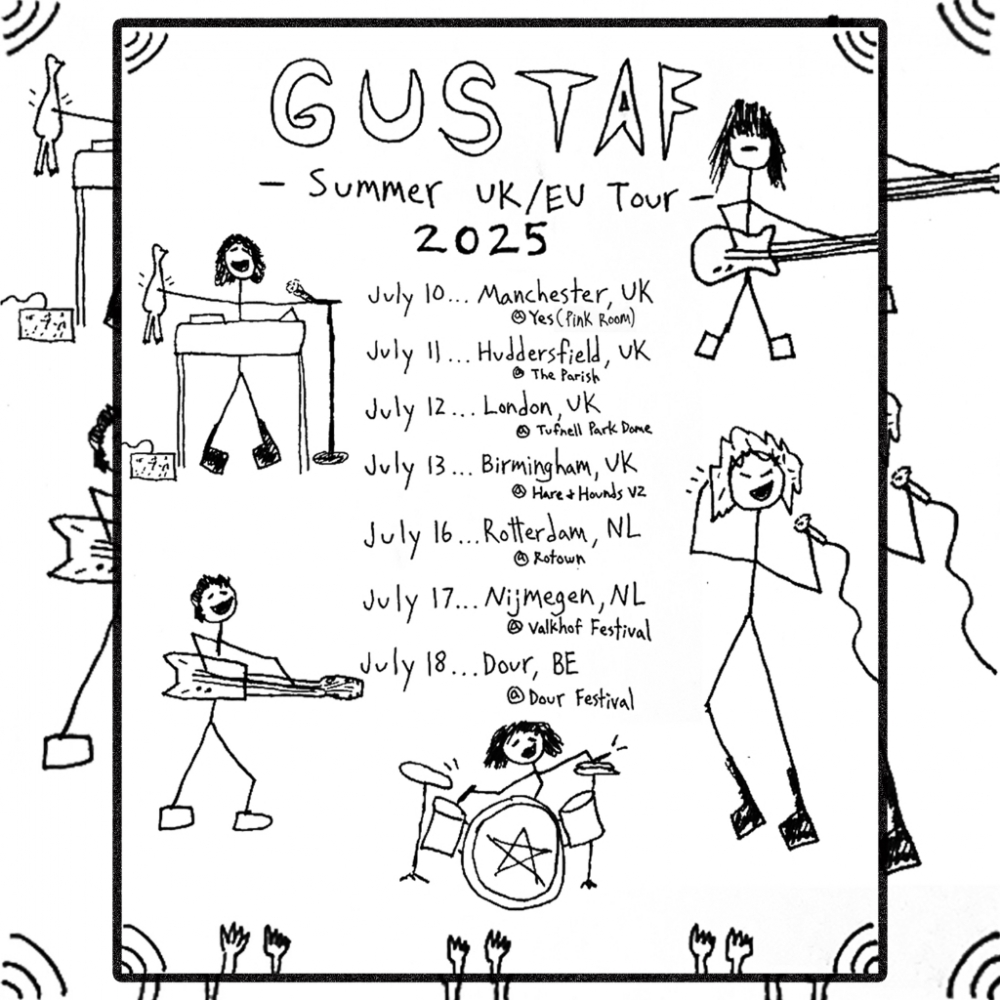 GUSTAF
- Summer UK/EU Tour -
2025
July 10... Manchester, UK
@ Yes (Pink Room)
July 11... Huddersfield, UK
@ The Parish
July 12... London, UK
@ Tufnell Park Dome
July 13... Birmingham, UK
@ Hare + Hounds V2
July 16... Rotterdam, NL
@ Rotown
July 17... Nijmegen, NL
@ Valkhof Festival
July 18... Dour, BE
@ Dour Festival